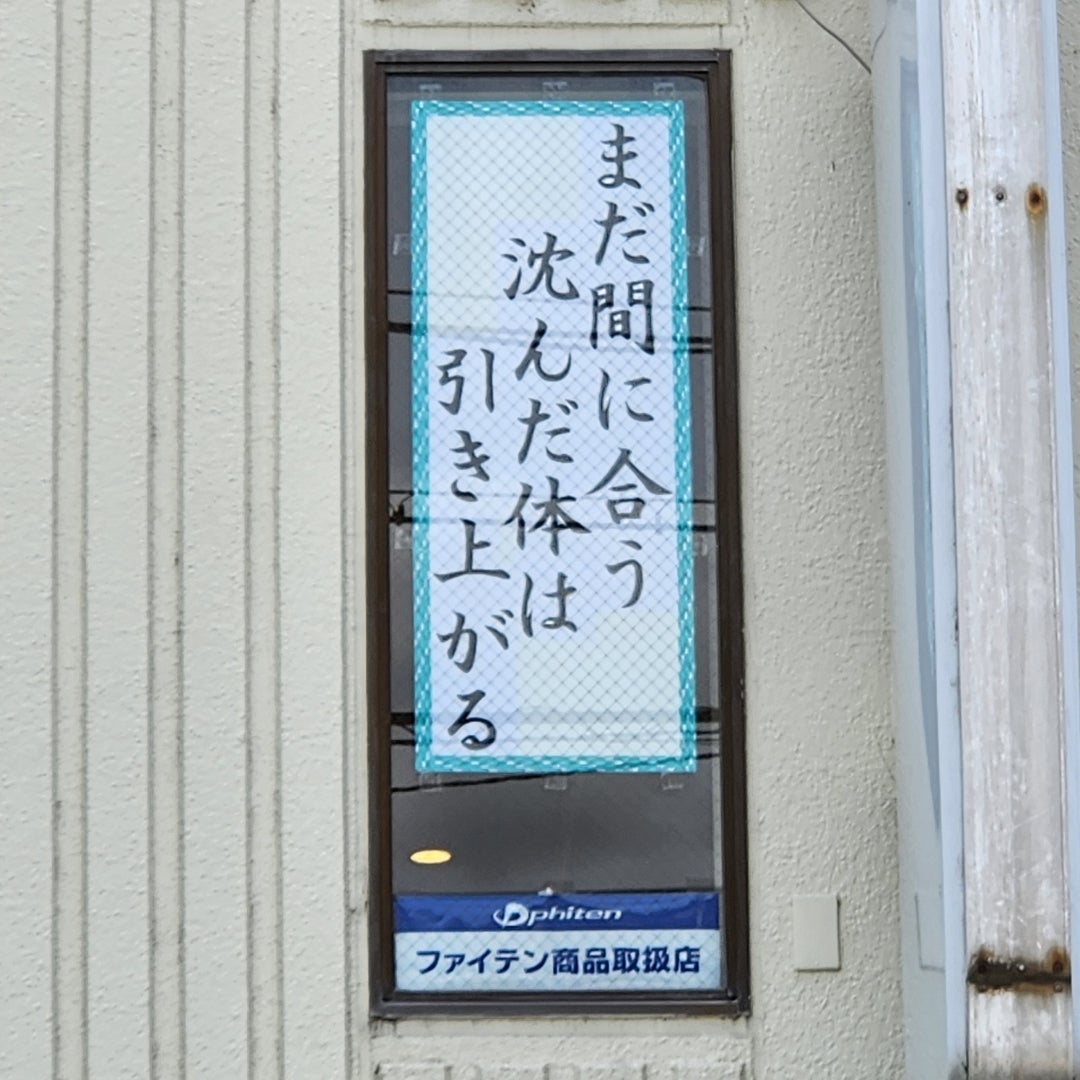 まだ間に合う
沈んだ体は
引き上がる
phiten
ファイテン商品取扱店